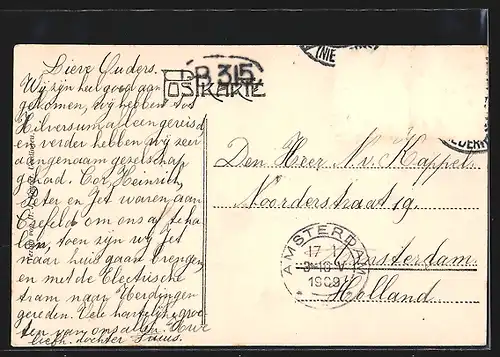 Lieve Ouders.
Wij zijn heel goed aan
gekomen, wij hebben tot
Hilversum alleen gereisd
en verder hebben wij zeer
aangenaam gezelschap
gehad. Cor, Heinrich,
Peter en Jet waren aan
Crefeld om ons af te ha
len, toen zijn wij Jet
naar huis gaan brengen
en met de Electrische
tram naar Uerdingen
gereden. Vele hartelijke groe
ten van ons allen. Uwe
liefh. dochter
B 315
POSTKARTE
Den Heer N. v. Kappel
Noorderstraat 19.
Amsterdam.
Holland.
AMSTERDAM
17 V
1909
(NIE